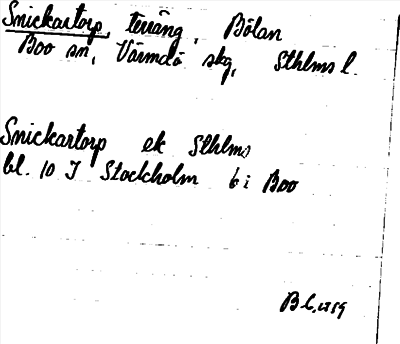 Snickartorp, terräng, Bölan
Boo sn, Värmdö skg, Sthlms l.
Snickartorp ek Sthlms
bl. 10 I Stockholm 6 i Boo